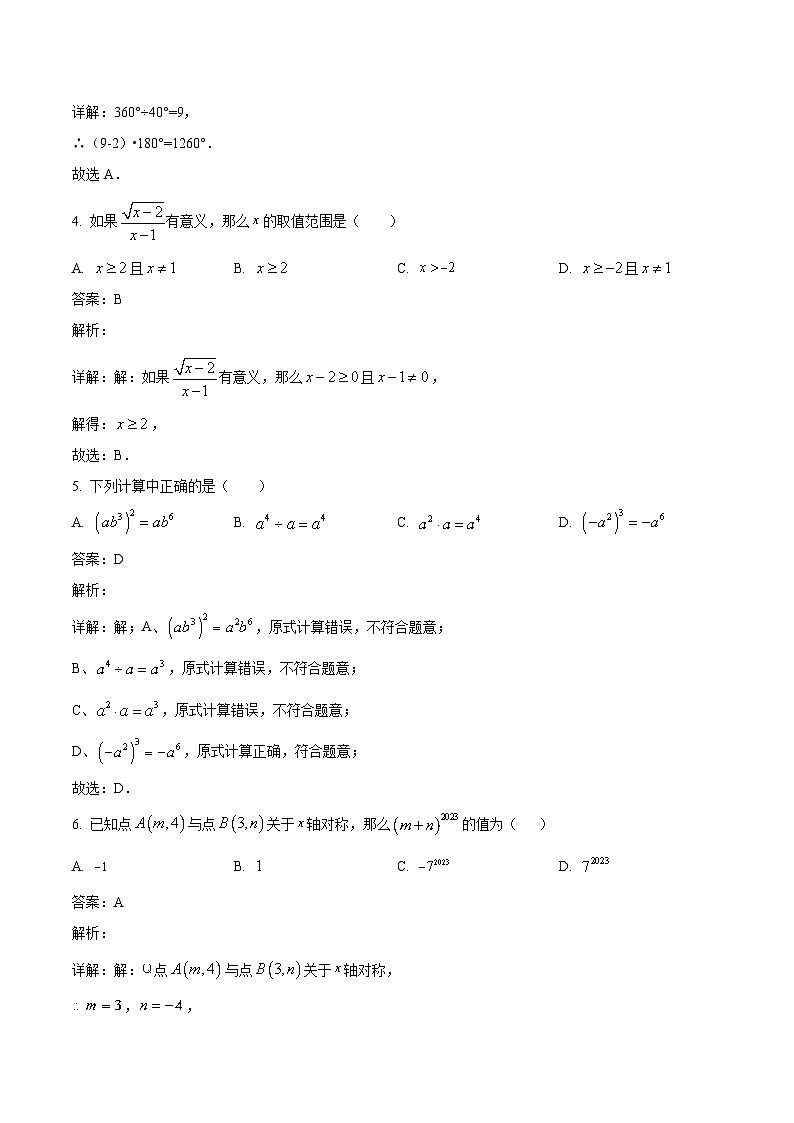 详解：360°÷40°=9，
∴（9-2）•180°=1260°．
故选 A．
4. 如果 \frac{\sqrt{x-2}}{x-1} 有意义，那么 x 的取值范围是（　　）
A. x ≥ 2 且 x ≠ 1 B. x ≥ 2 C. x > −2 D. x ≥ −2 且 x ≠ 1
答案：B
解析：
详解：解：如果 \frac{\sqrt{x-2}}{x-1} 有意义，那么 x − 2 ≥ 0 且 x − 1 ≠ 0，
解得：x ≥ 2，
故选：B．
5. 下列计算中正确的是（　　）
A. (ab³)² = ab⁶ B. a⁴ ÷ a = a⁴ C. a² · a = a⁴ D. (−a²)³ = −a⁶
答案：D
解析：
详解：解；A、(ab³)² = a²b⁶，原式计算错误，不符合题意；
B、a⁴ ÷ a = a³，原式计算错误，不符合题意；
C、a² · a = a³，原式计算错误，不符合题意；
D、(−a²)³ = −a⁶，原式计算正确，符合题意；
故选：D．
6. 已知点 A(m,4) 与点 B(3,n) 关于 x 轴对称，那么 (m+n)²⁰²³ 的值为（　　）
A. −1 B. 1 C. −7²⁰²³ D. 7²⁰²³
答案：A
解析：
详解：解：Q点 A(m,4) 与点 B(3,n) 关于 x 轴对称，
∴ m = 3，n = −4，